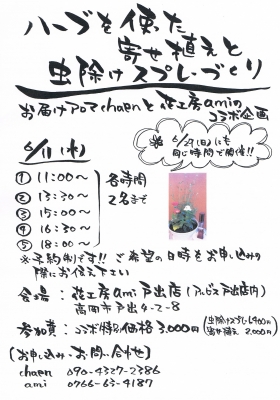 ハーブを使った
寄せ植えと
虫除けスプレーづくり
お届けアロマchaenと花工房amiの
コラボ企画
6/11(水)
※6/29(日)にも
同じ時間で開催!!
① 11:00〜
② 13:30〜
③ 15:00〜
④ 16:30〜
⑤ 18:00〜
各時間
2名まで
※予約制です!! ご希望の日時をお申し込みの
際にお伝え下さい
会場:花工房ami戸出店(アピス戸出店内)
高岡市戸出4-2-8
参加費:コラボ特別価格3,000円
(虫除けスプレー1,400円
寄せ植え 2,000円)
(お申し込み・お問い合わせ)
chaen 090-4327-2386
ami 0766-63-4187